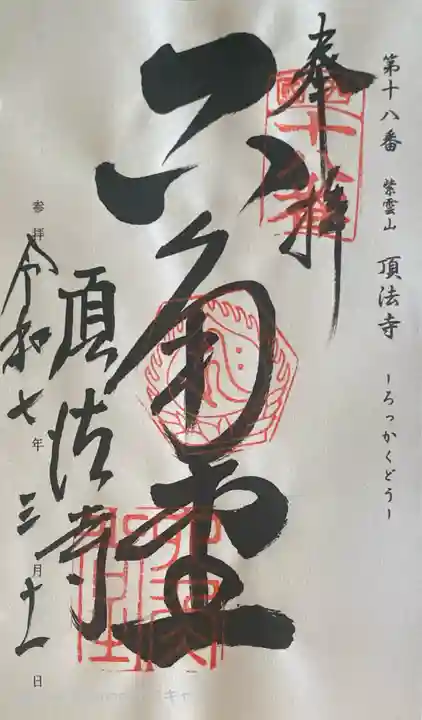 第十八番 紫雲山 頂法寺 ーろっかくどうー
奉拝
六角堂
頂法寺
参拝 令和七年三月十一日